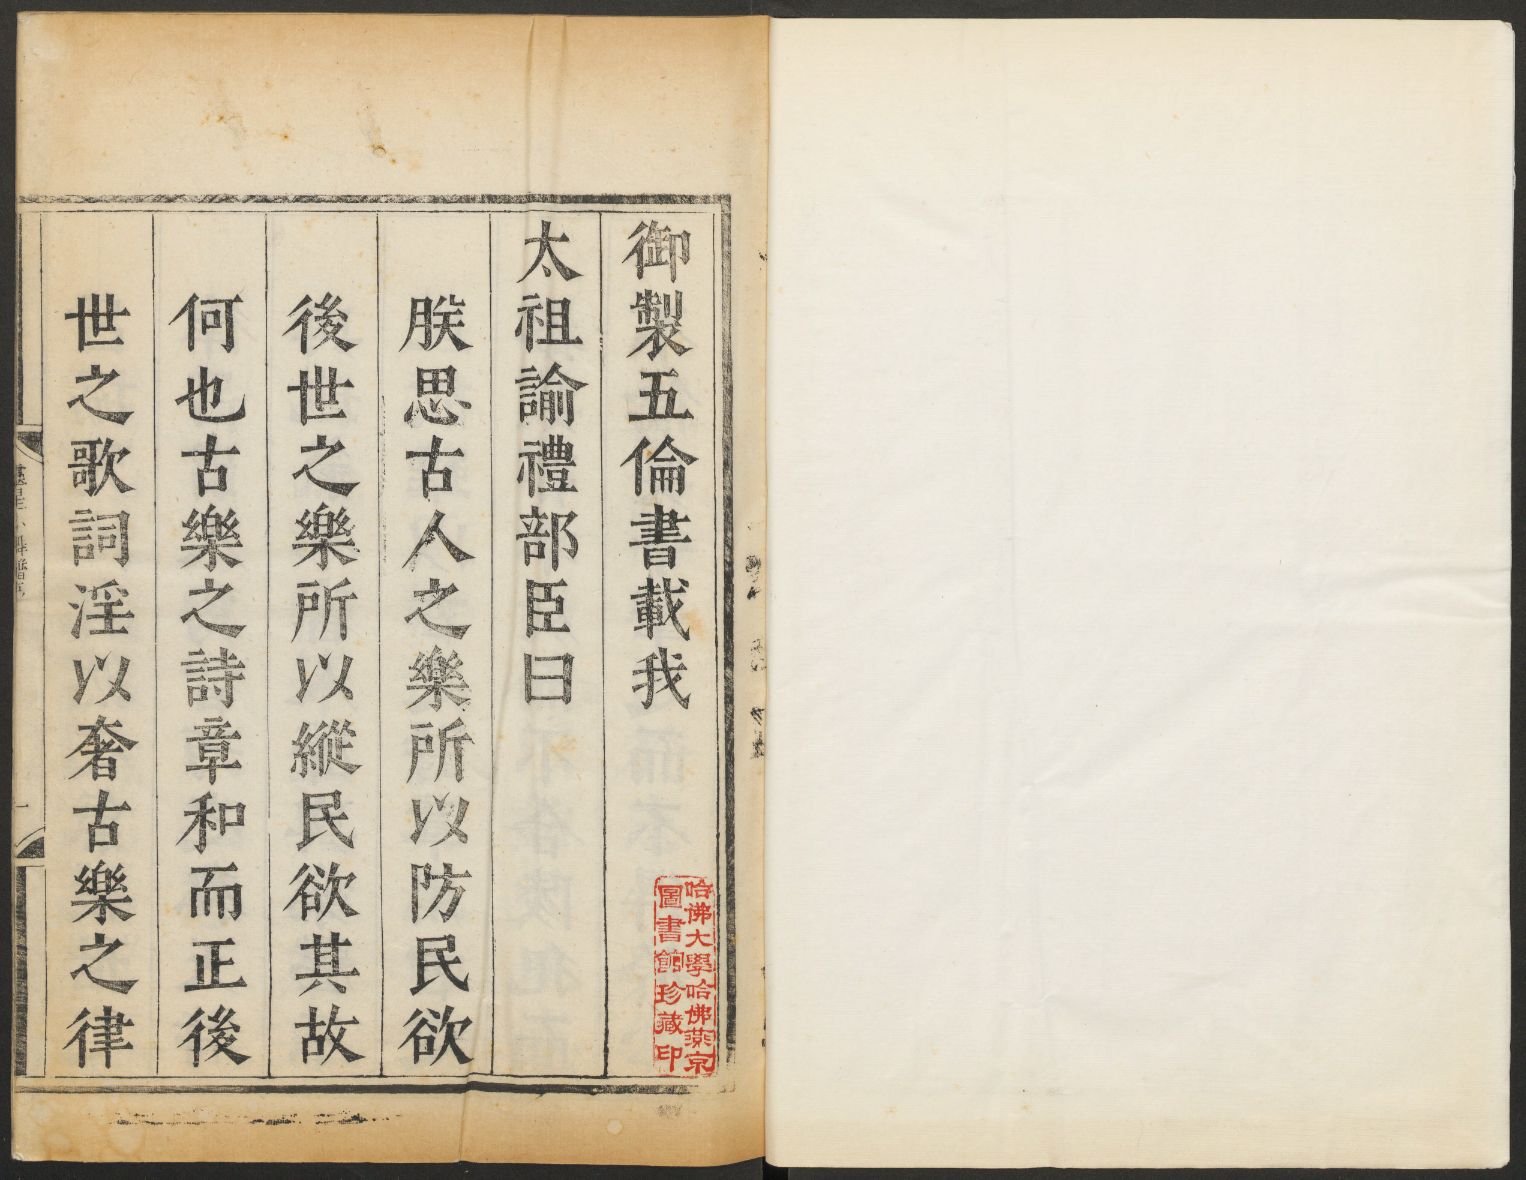 御製五倫書載我
太祖諭禮部臣曰
朕思古人之樂所以防民欲
後世之樂所以縱民欲其故
何也古樂之詩章和而正後
世之歌詞淫以奢古樂之律
哈佛大學哈佛燕京
圖書館珍藏印